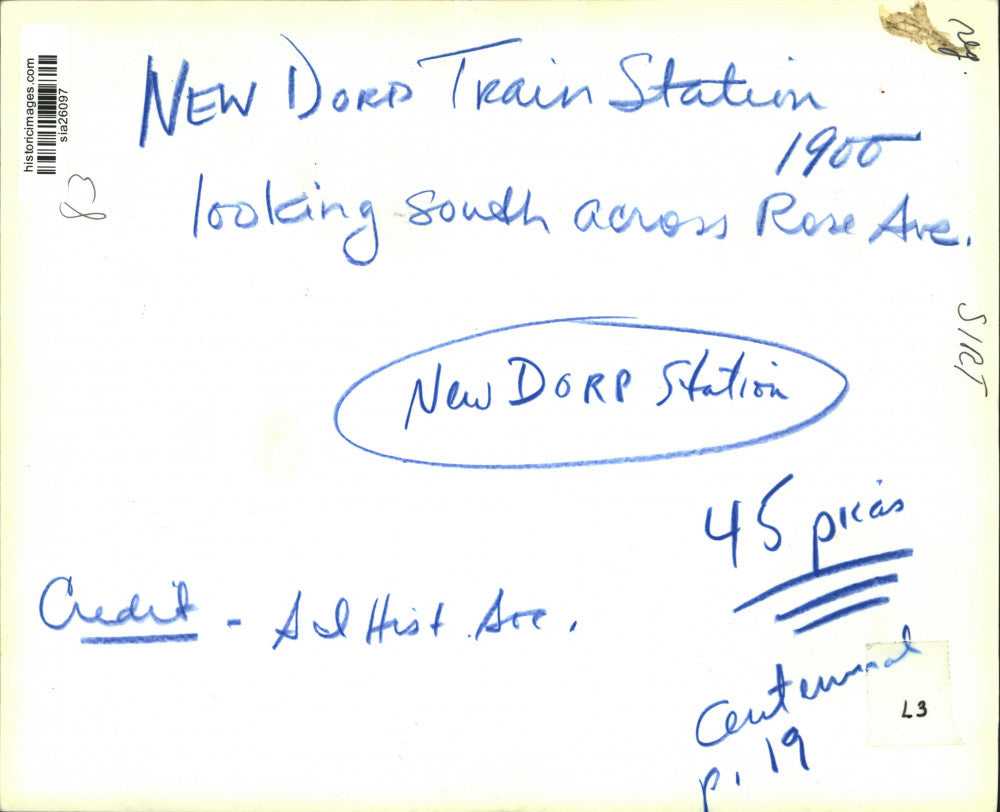 historicimages.com
sia26097
83
Neg.
NEW DORP Train Station
1900
looking south across Rose Ave.
SIRT
New DORP Station
45 picas
Credit - S I Hist. Soc.
Centennial
p. 19
L3